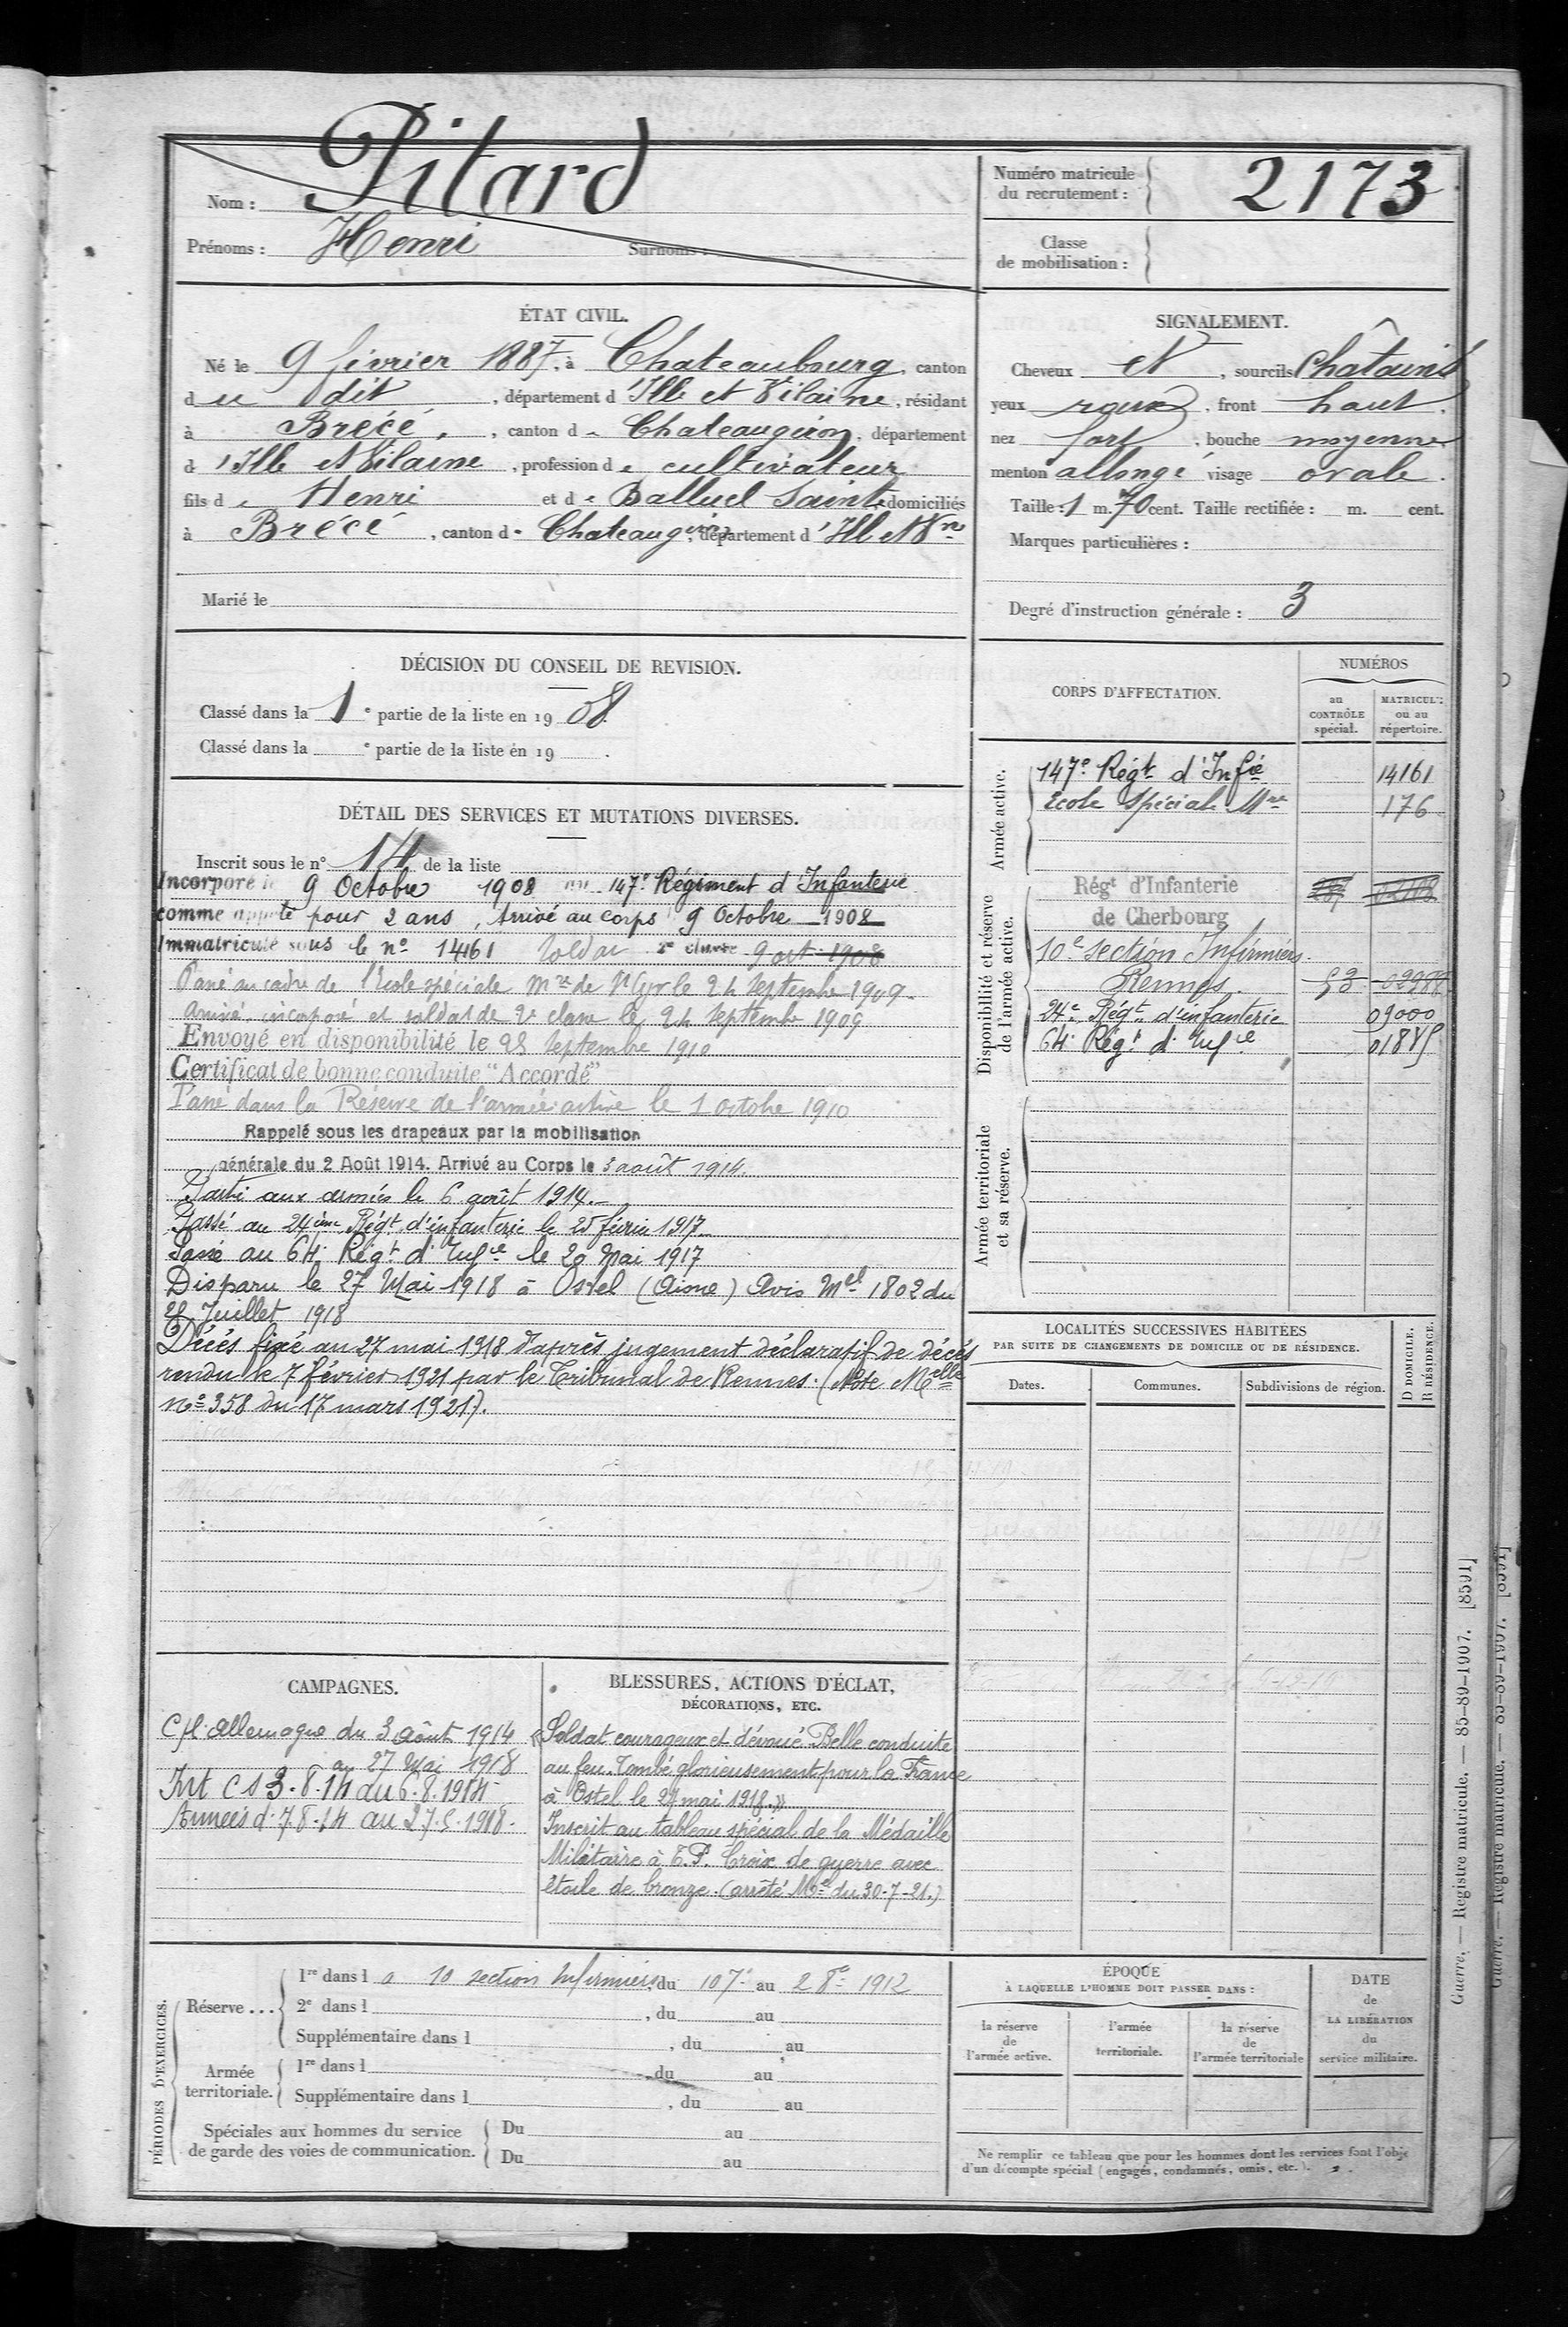 Nom : Pitard
Prénoms : Henri Surnoms :
Numéro matricule du recrutement : 2173
Classe de mobilisation :
ÉTAT CIVIL.
Né le 9 février 1887, à Chateaubourg, canton
d u dit, département d'Ille et Vilaine, résidant
à Brécé, canton de Chateaugiron, département
d'Ille et Vilaine, profession de cultivateur
fils de Henri et de Balluel Sainte domiciliés
à Brécé, canton de Chateaugiron, département d'Ill et Vne
Marié le
SIGNALEMENT.
Cheveux et, sourcils Châtains
yeux roux, front haut.
nez fort, bouche moyenne
menton allongé visage ovale.
Taille : 1 m. 70 cent. Taille rectifiée : m. cent.
Marques particulières :
Degré d'instruction générale : 3
DÉCISION DU CONSEIL DE REVISION.
Classé dans la 1e partie de la liste en 1908.
Classé dans la e partie de la liste en 19 .
DÉTAIL DES SERVICES ET MUTATIONS DIVERSES.
Inscrit sous le n° 14 de la liste
Incorporé le 9 Octobre 1908 au 147e Régiment d'Infanterie
comme appelé pour 2 ans, Arrivé au corps 9 Octobre 1908
Immatriculé sous le no 14161 Soldat 2e classe 9 oct 1908
Passé au cadre de l'Ecole spéciale Mre de St Cyr le 24 Septembre 1909.
Arrivé, incorporé et soldat de 2e classe le 24 Septembre 1909
Envoyé en disponibilité le 25 Septembre 1910
Certificat de bonne conduite "Accordé"
Passé dans la Réserve de l'armée active le 1 octobre 1910
Rappelé sous les drapeaux par la mobilisation
générale du 2 Août 1914. Arrivé au Corps le 3 août 1914.
Parti aux armées le 6 août 1914.
Passé au 24ème Régt d'infanterie le 25 février 1917.
Passé au 64e Régt d'Infie le 20 Mai 1917
Disparu le 27 Mai 1918 à Ostel (Aisne) Avis Mel 1802 du
Juillet 1918
Décès fixé au 27 mai 1918 d'après jugement déclaratif de décès
rendu le 7 février 1921 par le Tribunal de Rennes. (Note Melle
no 358 du 17 mars 1921).
CORPS D'AFFECTATION.
NUMÉROS
au CONTRÔLE spécial.
MATRICULE ou au répertoire.
Armée active.
147e Régt d'Infie 14161
Ecole Spéciale Mre 176
Disponibilité et réserve de l'armée active.
Régt d'Infanterie
de Cherbourg
10e section Infirmiers
Rennes. 53
24e Régt d'infanterie 09000
64e Régt d'Infie
Armée territoriale et sa réserve.
LOCALITÉS SUCCESSIVES HABITÉES
PAR SUITE DE CHANGEMENTS DE DOMICILE OU DE RÉSIDENCE.
Dates. Communes. Subdivisions de région. D DOMICILE. R RÉSIDENCE.
CAMPAGNES.
C/ l'Allemagne du 3 août 1914
au 27 Mai 1918
Int C S 3.8.14 au 6.8.1914
Armées d. 7.8.14 au 27.5.1918.
BLESSURES, ACTIONS D'ÉCLAT,
DÉCORATIONS, ETC.
« Soldat courageux et dévoué. Belle conduite
au feu. Tombé glorieusement pour la France
à Ostel le 27 mai 1918. »
Inscrit au tableau spécial de la Médaille
Militaire à T.P. Croix de guerre avec
étoile de bronze. (arrêté Mel du 30-7-21.)
PÉRIODES D'EXERCICES.
Réserve ...
1re dans la 10 section Infirmiers, du 10 7e au 2 8e 1912
2e dans l , du au
Supplémentaire dans l , du au
Armée territoriale.
1re dans l , du au
Supplémentaire dans l , du au
Spéciales aux hommes du service
de garde des voies de communication.
Du au
Du au
ÉPOQUE
À LAQUELLE L'HOMME DOIT PASSER DANS :
la réserve de l'armée active.
l'armée territoriale.
la réserve de l'armée territoriale
DATE de LA LIBÉRATION du service militaire.
Ne remplir ce tableau que pour les hommes dont les services font l'obje
d'un décompte spécial (engagés, condamnés, omis, etc.).
Guerre. — Registre matricule. — 85-89-1907. [8591]
Guerre. — Registre matricule. — 85-89-1907.